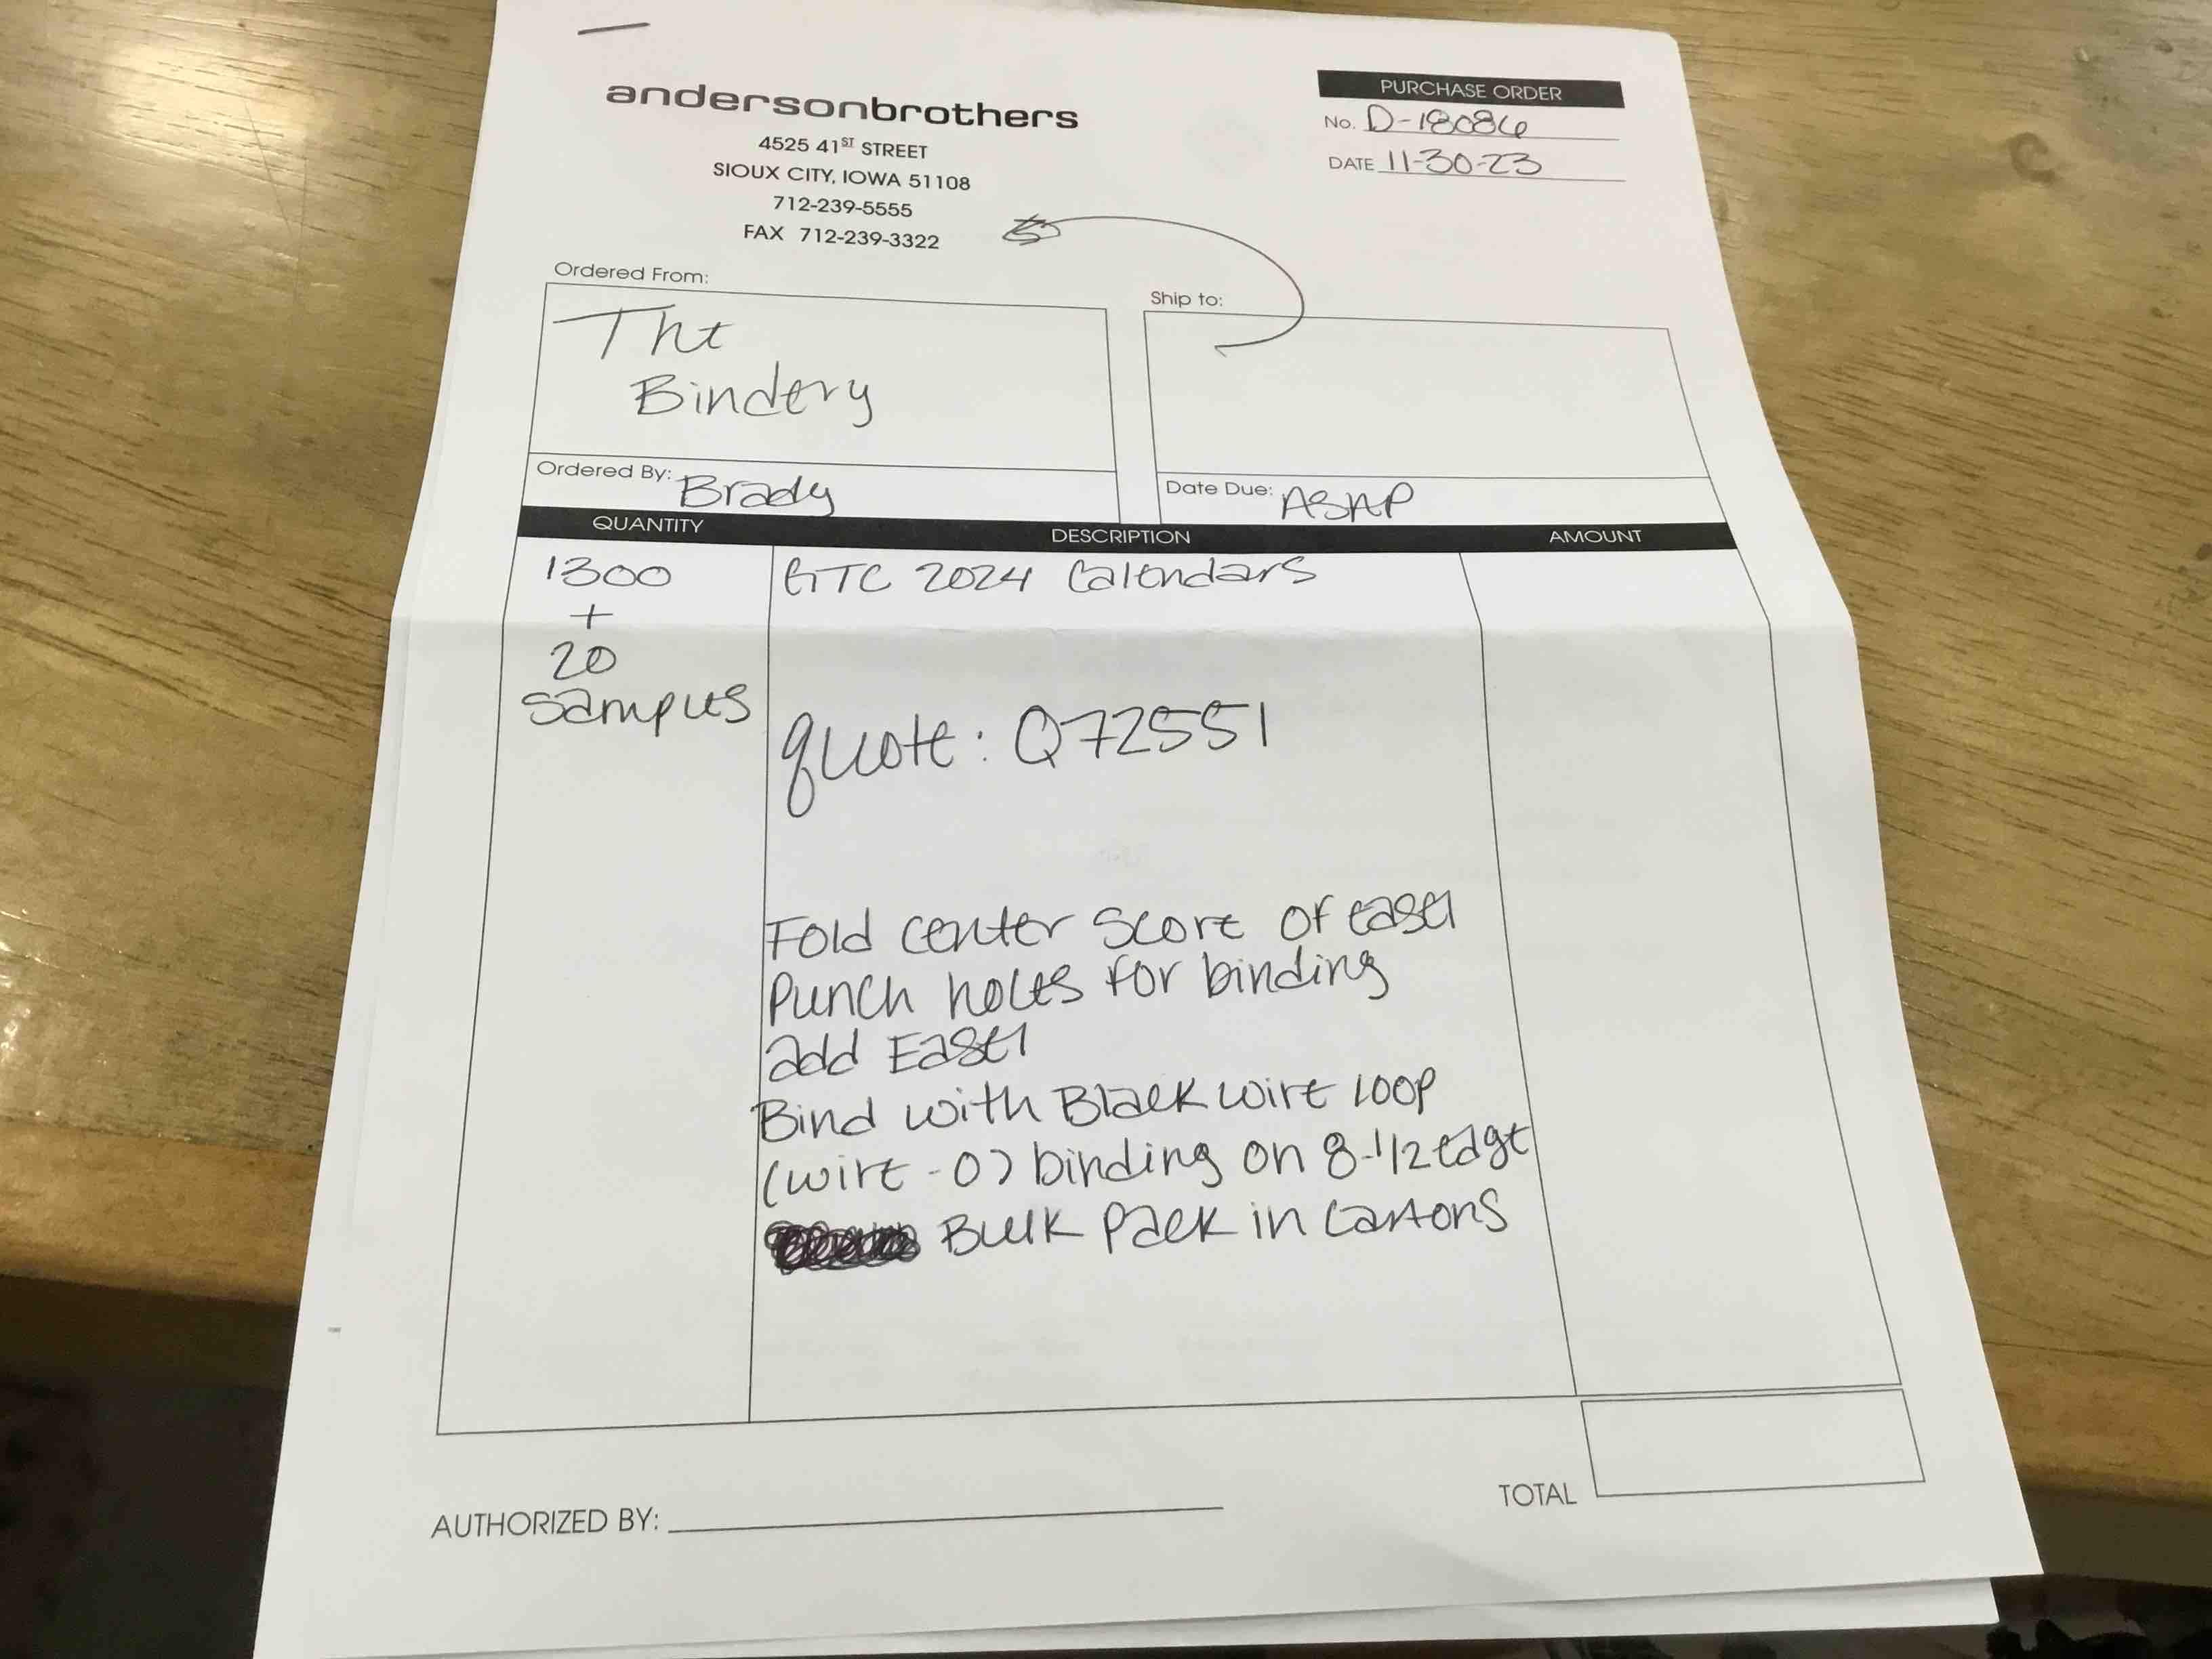 andersonbrothers
4525 41ST STREET
SIOUX CITY, IOWA 51108
712-239-5555
FAX 712-239-3322
PURCHASE ORDER
No. D-18086
DATE 11-30-23
Ordered From:
The
Bindery
Ship to:
Ordered By: Brady
Date Due: ASAP
QUANTITY DESCRIPTION AMOUNT
1300 GTC 2024 Calendars
+
20
samples
quote: Q72551
Fold center score of easel
Punch holes for binding
add Easel
Bind with Black wire loop
(wire-O) binding on 8-1/2 edge
Bulk Pack in Cartons
AUTHORIZED BY:
TOTAL